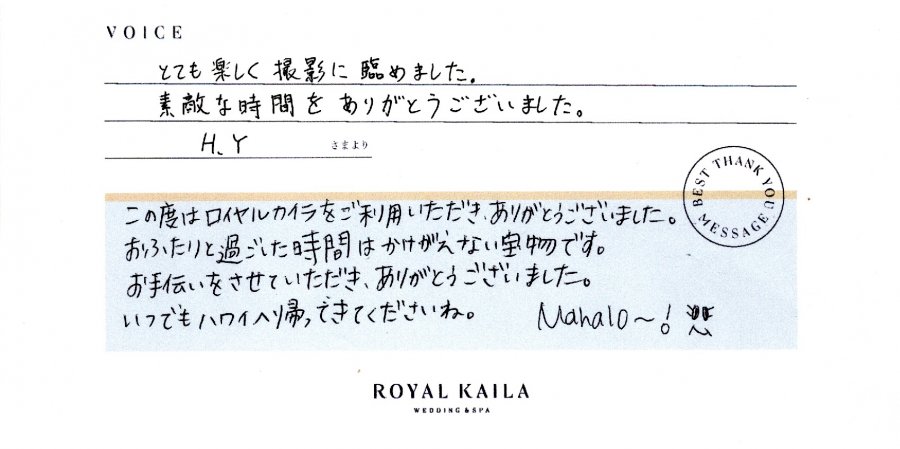 VOICE
とても楽しく撮影に臨めました。
素敵な時間をありがとうございました。
H.Y さまより
BEST THANK YOU MESSAGE
この度はロイヤルカイラをご利用いただき、ありがとうございました。
おふたりと過ごした時間はかけがえない宝物です。
お手伝いをさせていただき、ありがとうございました。
いつでもハワイへ帰ってきてくださいね。 Mahalo～!
ROYAL KAILA
WEDDING & SPA